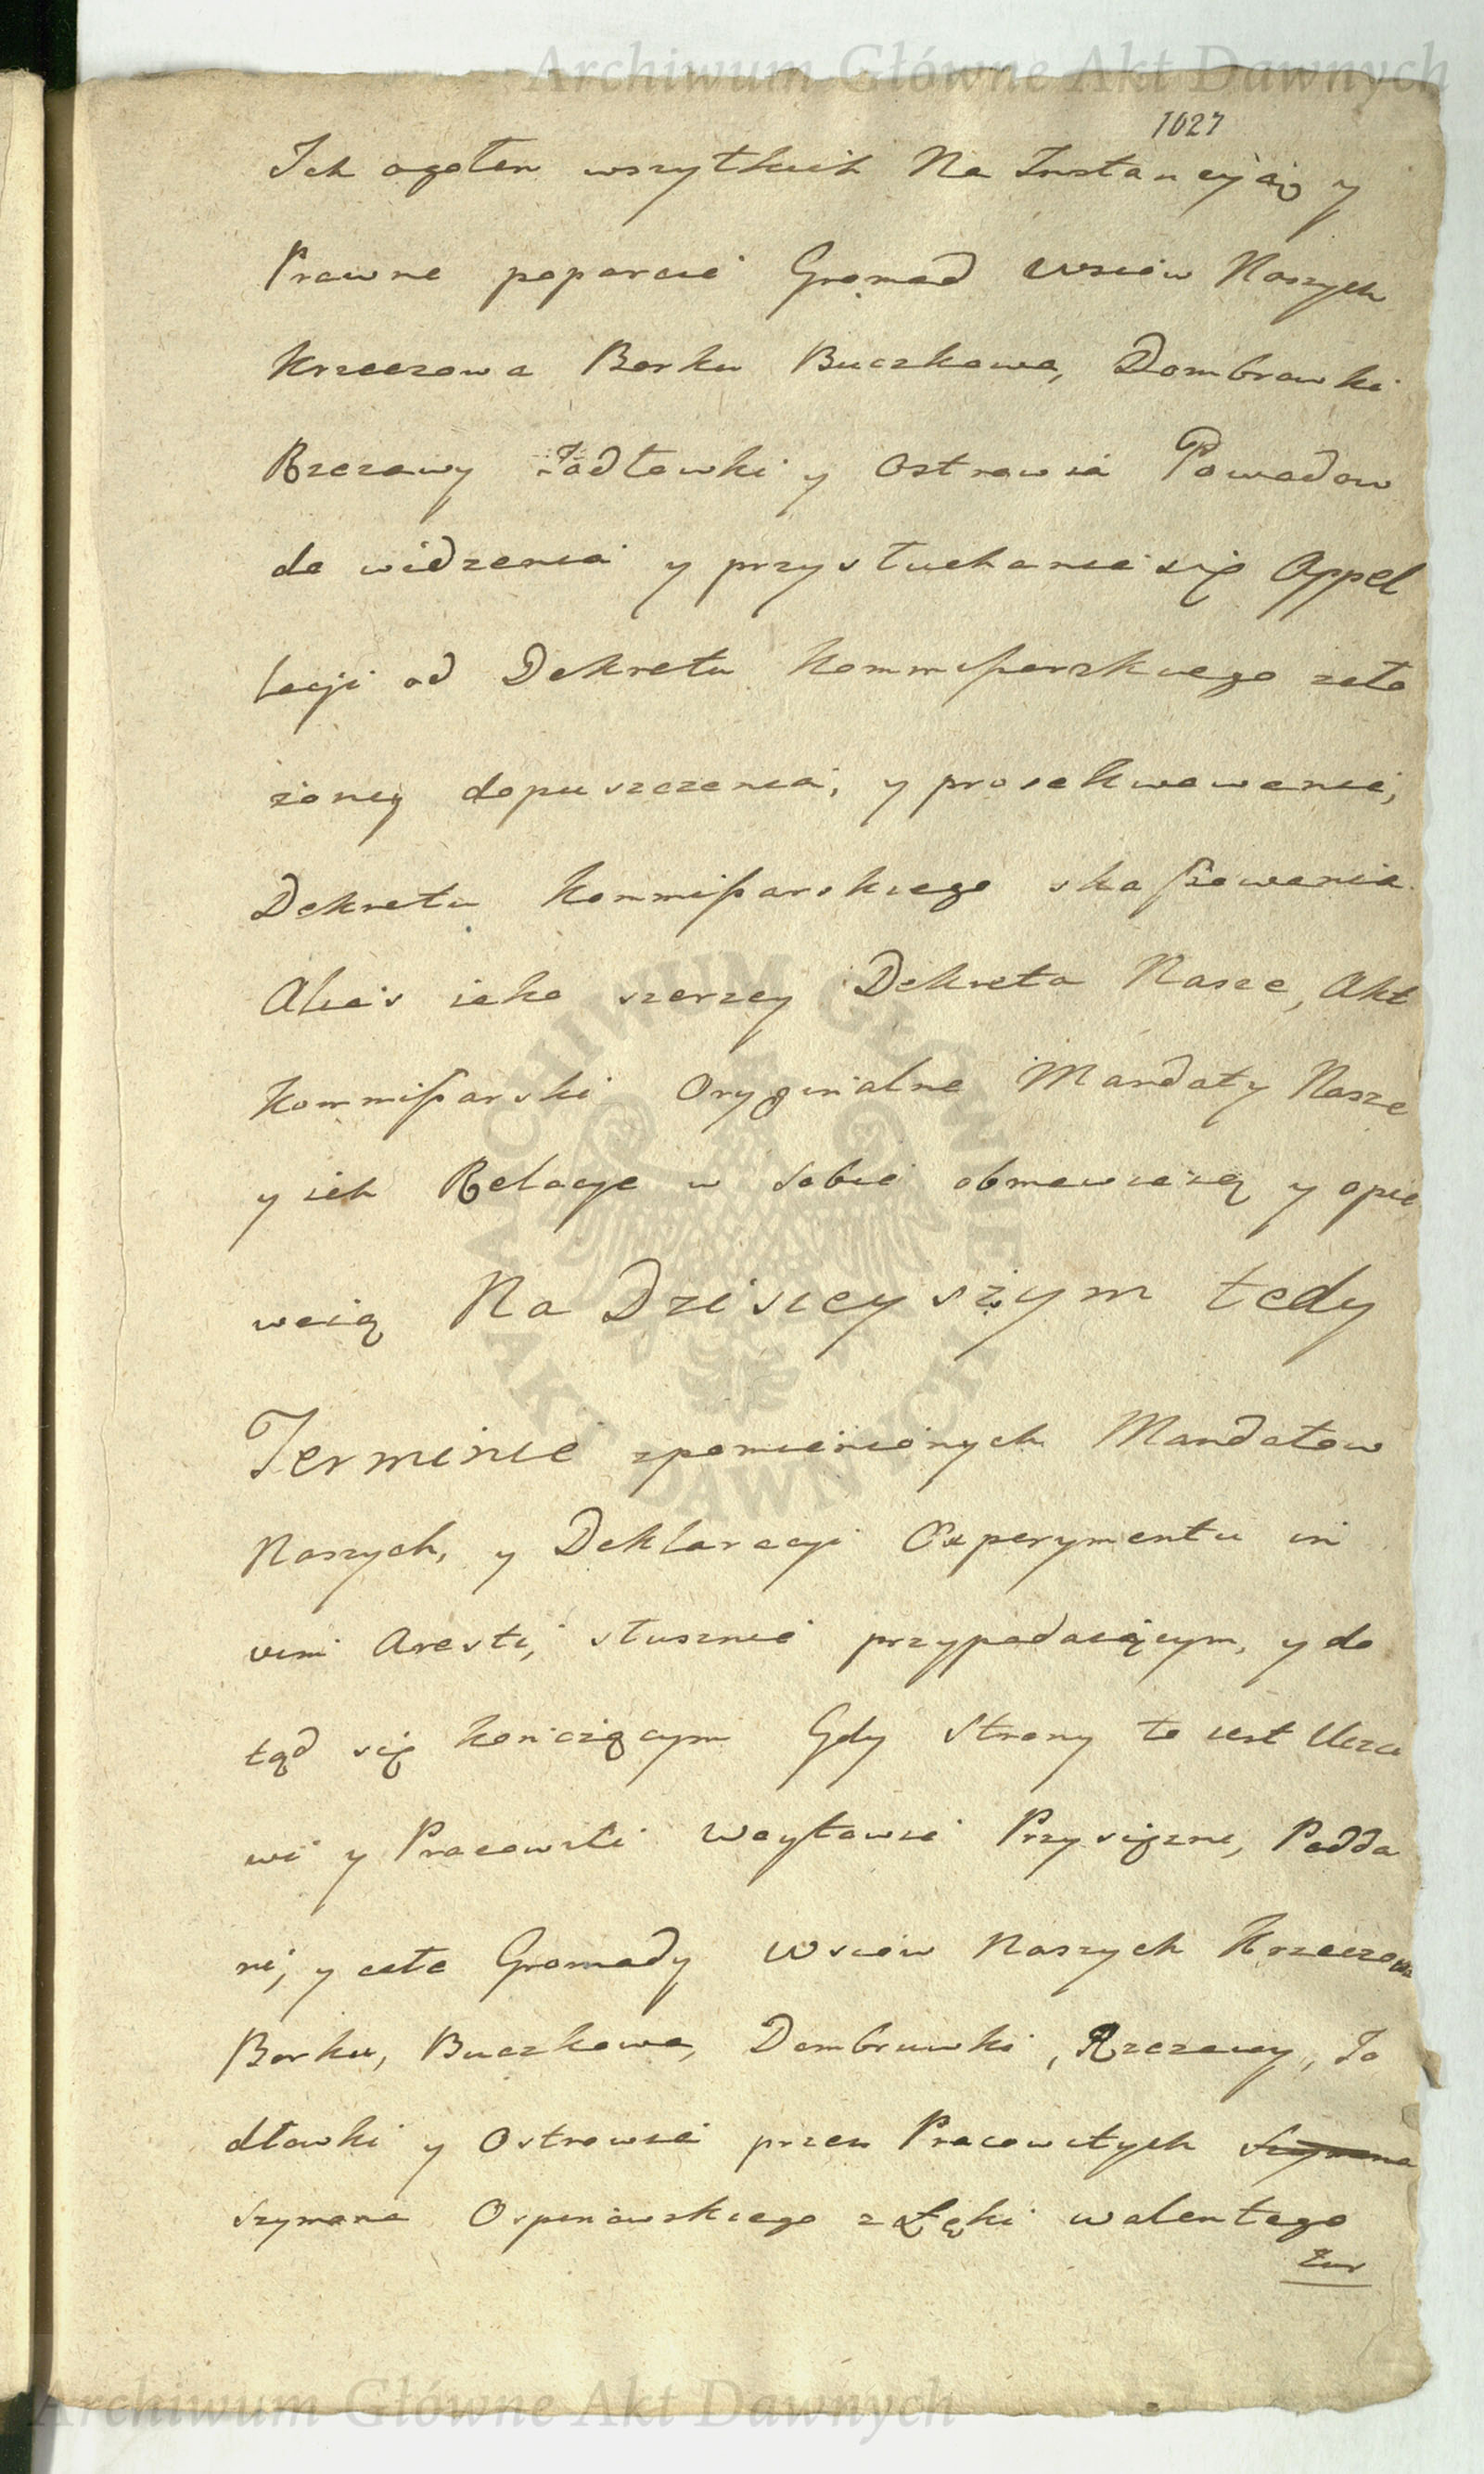 Archiwum Główne Akt Dawnych
1027
Ich ogołem wszytkich Na Instancyią y
Prawne poparcie Gromad Wsiow Naszych
Krzeczowa Borku Buczkowa, Dombrowki
Rzezawy Jodłowki y Ostrowia Powodow
do widzenia y przysłuchania się Appel
lacji od Dekretu Kommissarskiego zało
żoney dopuszczenia, y prosekwowania,
Dekretu Kommissarskiego skassowania
Alias iako szerzey Dekreta Nasze, Akt
Kommissarski Oryginalne Mandaty Nasze
y ich Relacye w sobie obmawiaią y opie
waią Na Dzisieyszym tedy
Terminie zpomienionych Mandatow
Naszych, y Deklaracyi Experymentu in
vim Aresti, słusznie przypadaiącym, y do
tąd się kończącym Gdy Strony to iest Uczci
wi y Pracowici Woytowie Przysiężni, Podda
ni, y całe Gromady Wsiow Naszych Krzeczowa
Borku, Buczkowa, Dombruwki, Rzezawy, Jo
dłowki y Ostrowia przez Pracowitych Szymona
Szymona Ospinowskiego z Łęki Walentego
Żur
ARCHIWUM GŁÓWNE AKT DAWNYCH
Archiwum Główne Akt Dawnych